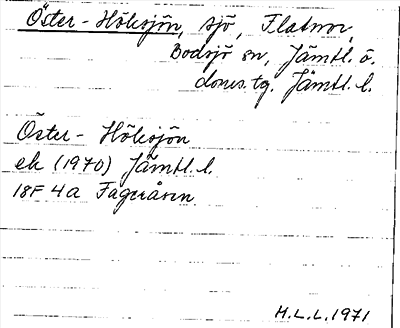 Öster-Höksjön, sjö, Flatnor,
Bodsjö sn, Jämtl. ö.
doms.tg. Jämtl. l.
Öster-Höksjön
ek (1970) Jämtl. l.
18F 4a Fageråsen
H.L.L. 1971